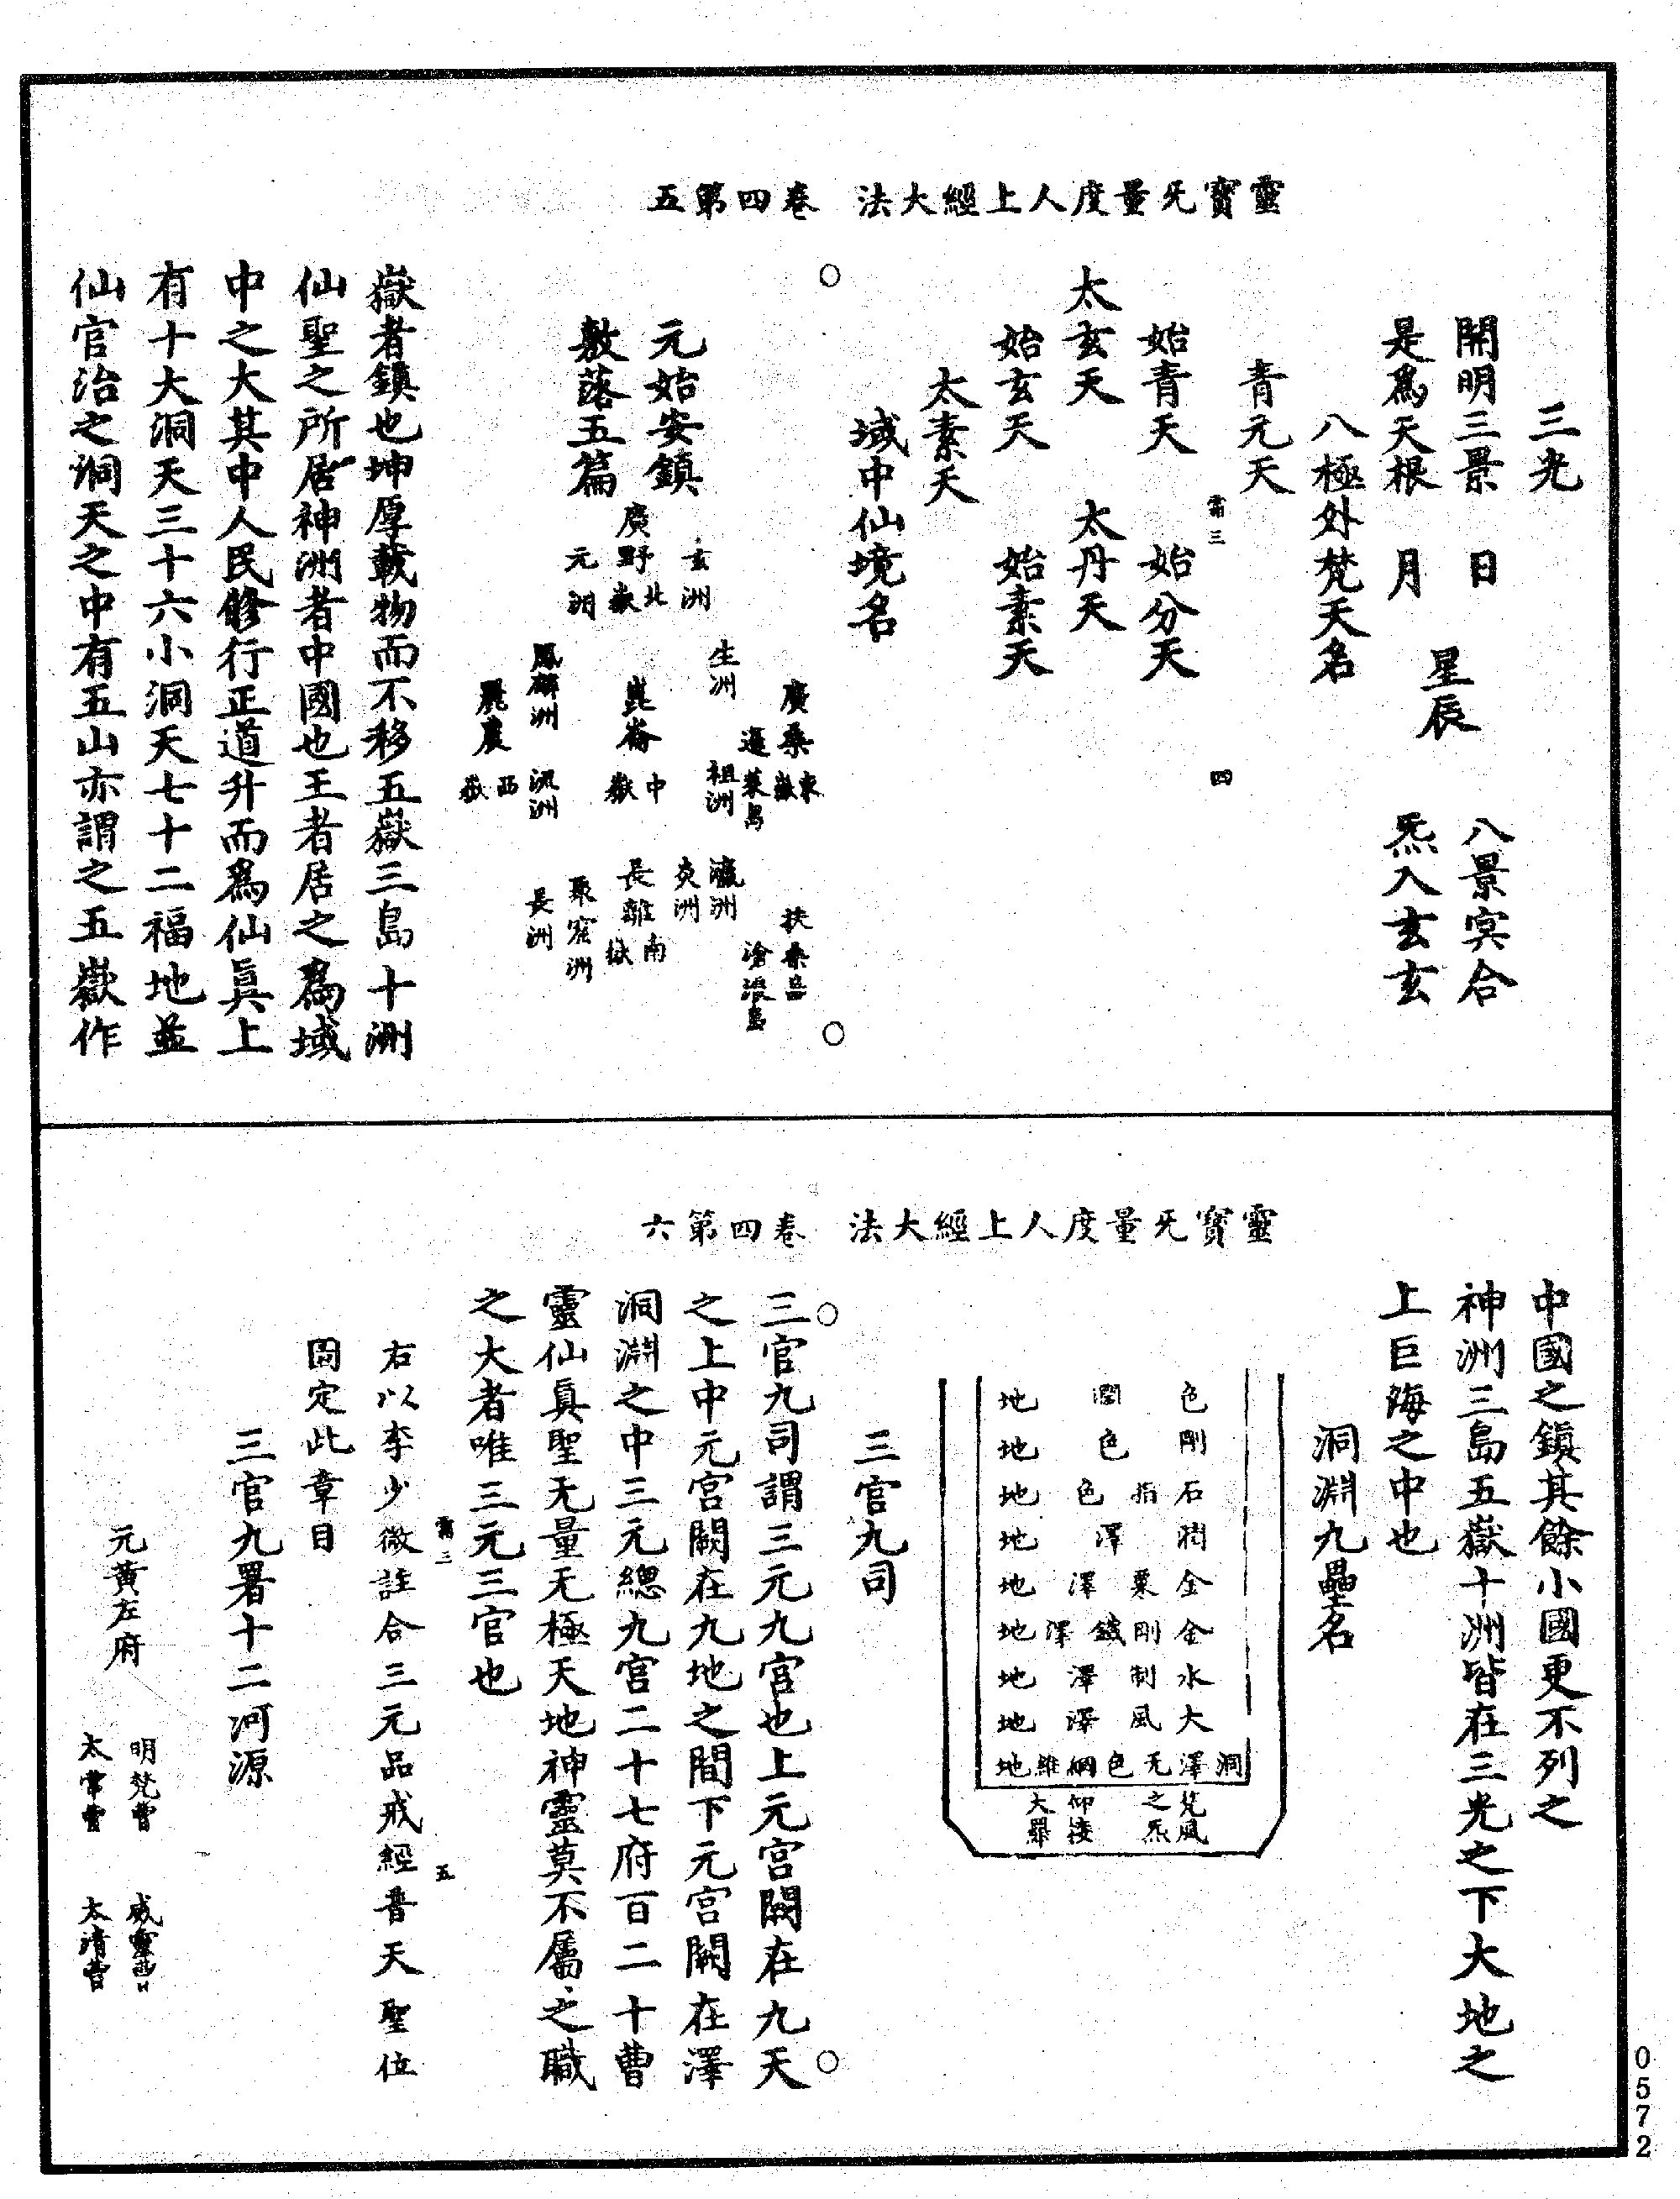 靈寶无量度人上經大法　卷四第五
三光
開明三景　日　八景冥合
是爲天根　月　炁入玄玄
星辰
八極外梵天名
青元天
霜三　四
始青天　始分天
太玄天　太丹天
始玄天　始素天
太素天
域中仙境名
廣桑東嶽　扶桑島
蓬萊島　滄浪島
生洲　祖洲　瀛洲
元始安鎮　玄洲　炎洲
廣野北嶽　崑崙中嶽　長離南嶽
敷落五篇　元洲　聚窟洲
鳳麟洲　流洲　長洲
麗農西嶽
嶽者鎮也坤厚載物而不移五嶽三島十洲
仙聖之所居神洲者中國也王者居之爲域
中之大其中人民修行正道升而爲仙眞上
有十大洞天三十六小洞天七十二福地並
仙官治之洞天之中有五山亦謂之五嶽作
靈寶无量度人上經大法　卷四第六
中國之鎮其餘小國更不列之
神洲三島五嶽十洲皆在三光之下大地之
上巨海之中也
洞淵九壘名
色潤地
剛色地
石指色地
潤澤地
金粟澤地
金剛鐵澤地
水制澤地
大風澤地
洞澤无色綱維地
梵風之炁
仰接大羅
三官九司
三官九司謂三元九宮也上元宮闕在九天
之上中元宮闕在九地之間下元宮闕在澤
洞淵之中三元總九宮二十七府百二十曹
靈仙眞聖无量无極天地神靈莫不屬之職
之大者唯三元三官也
霜三　五
右以李少微註合三元品戒經普天聖位
固定此章目
三官九署十二河源
明梵曹　威靈曹
元黃左府
太常曹　太清曹
0572